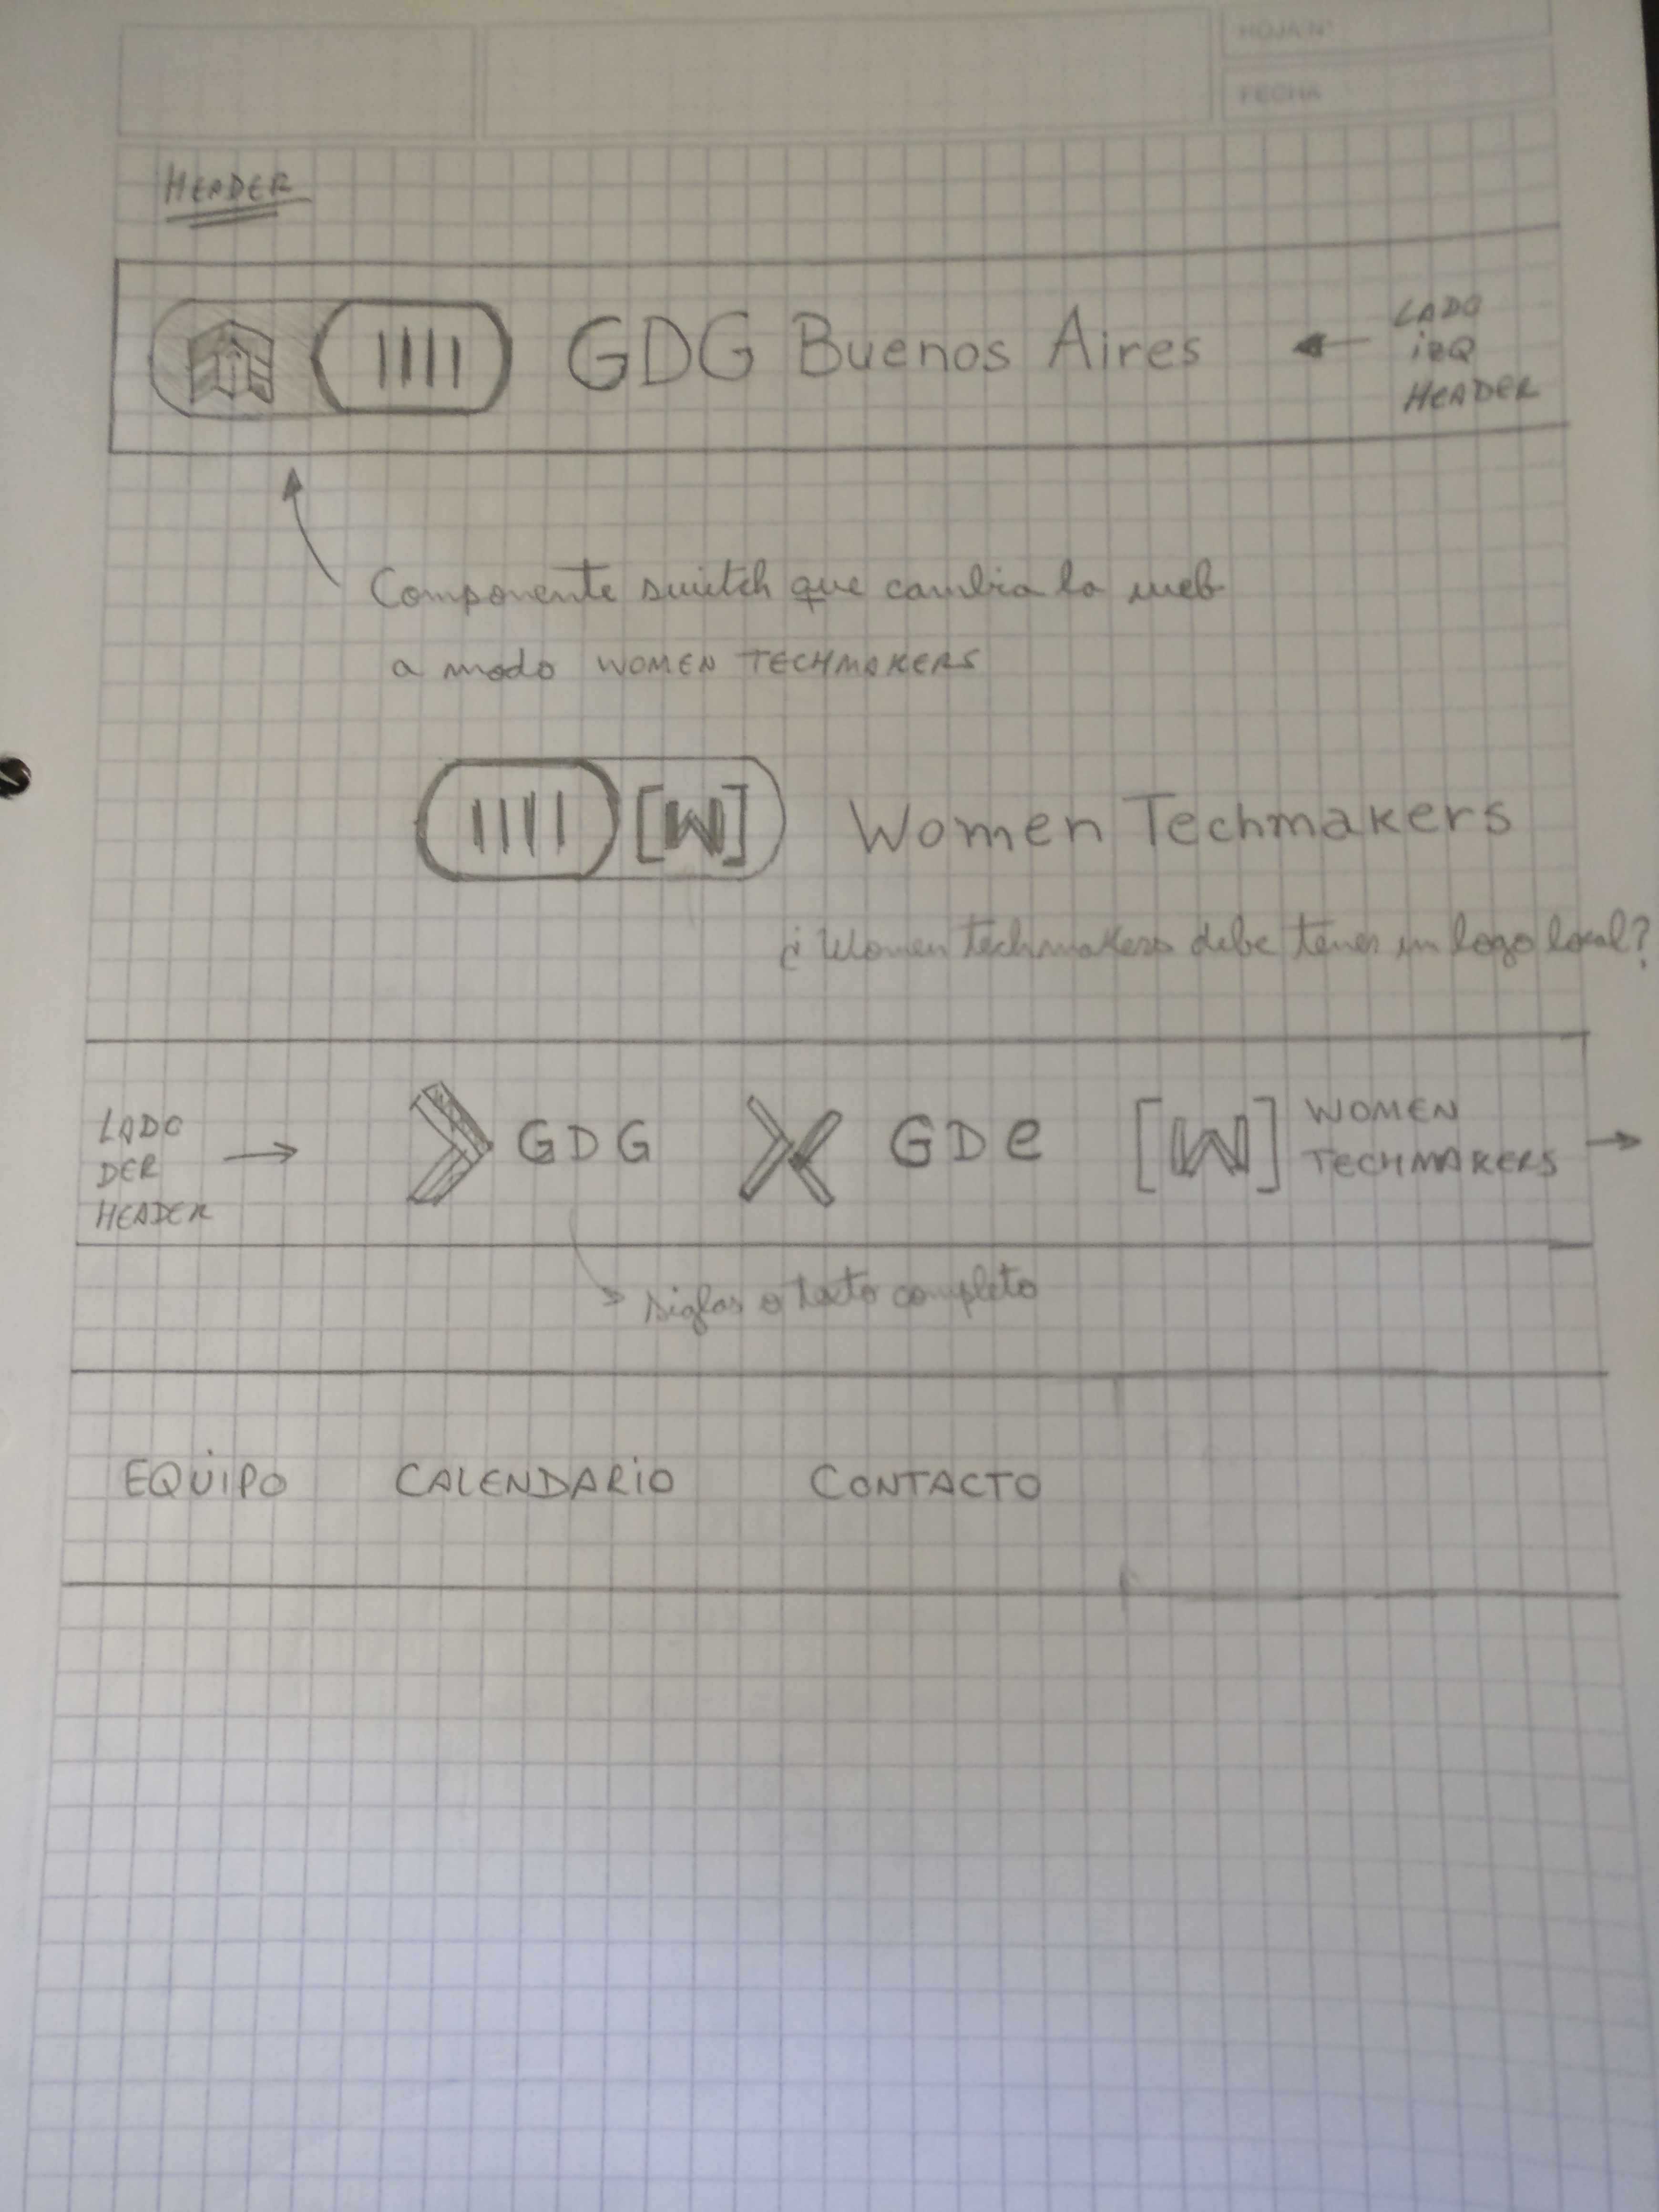 HOJA N°
FECHA
HEADER
GDG Buenos Aires
LADO
IZQ
HEADER
Componente switch que cambia la web
a modo WOMEN TECHMAKERS
[W] Women Techmakers
¿Women techmakers debe tener un logo local?
LADO
DER
HEADER
GDG
GDE
[W] WOMEN
TECHMAKERS
siglas o texto completo
EQUIPO CALENDARIO CONTACTO